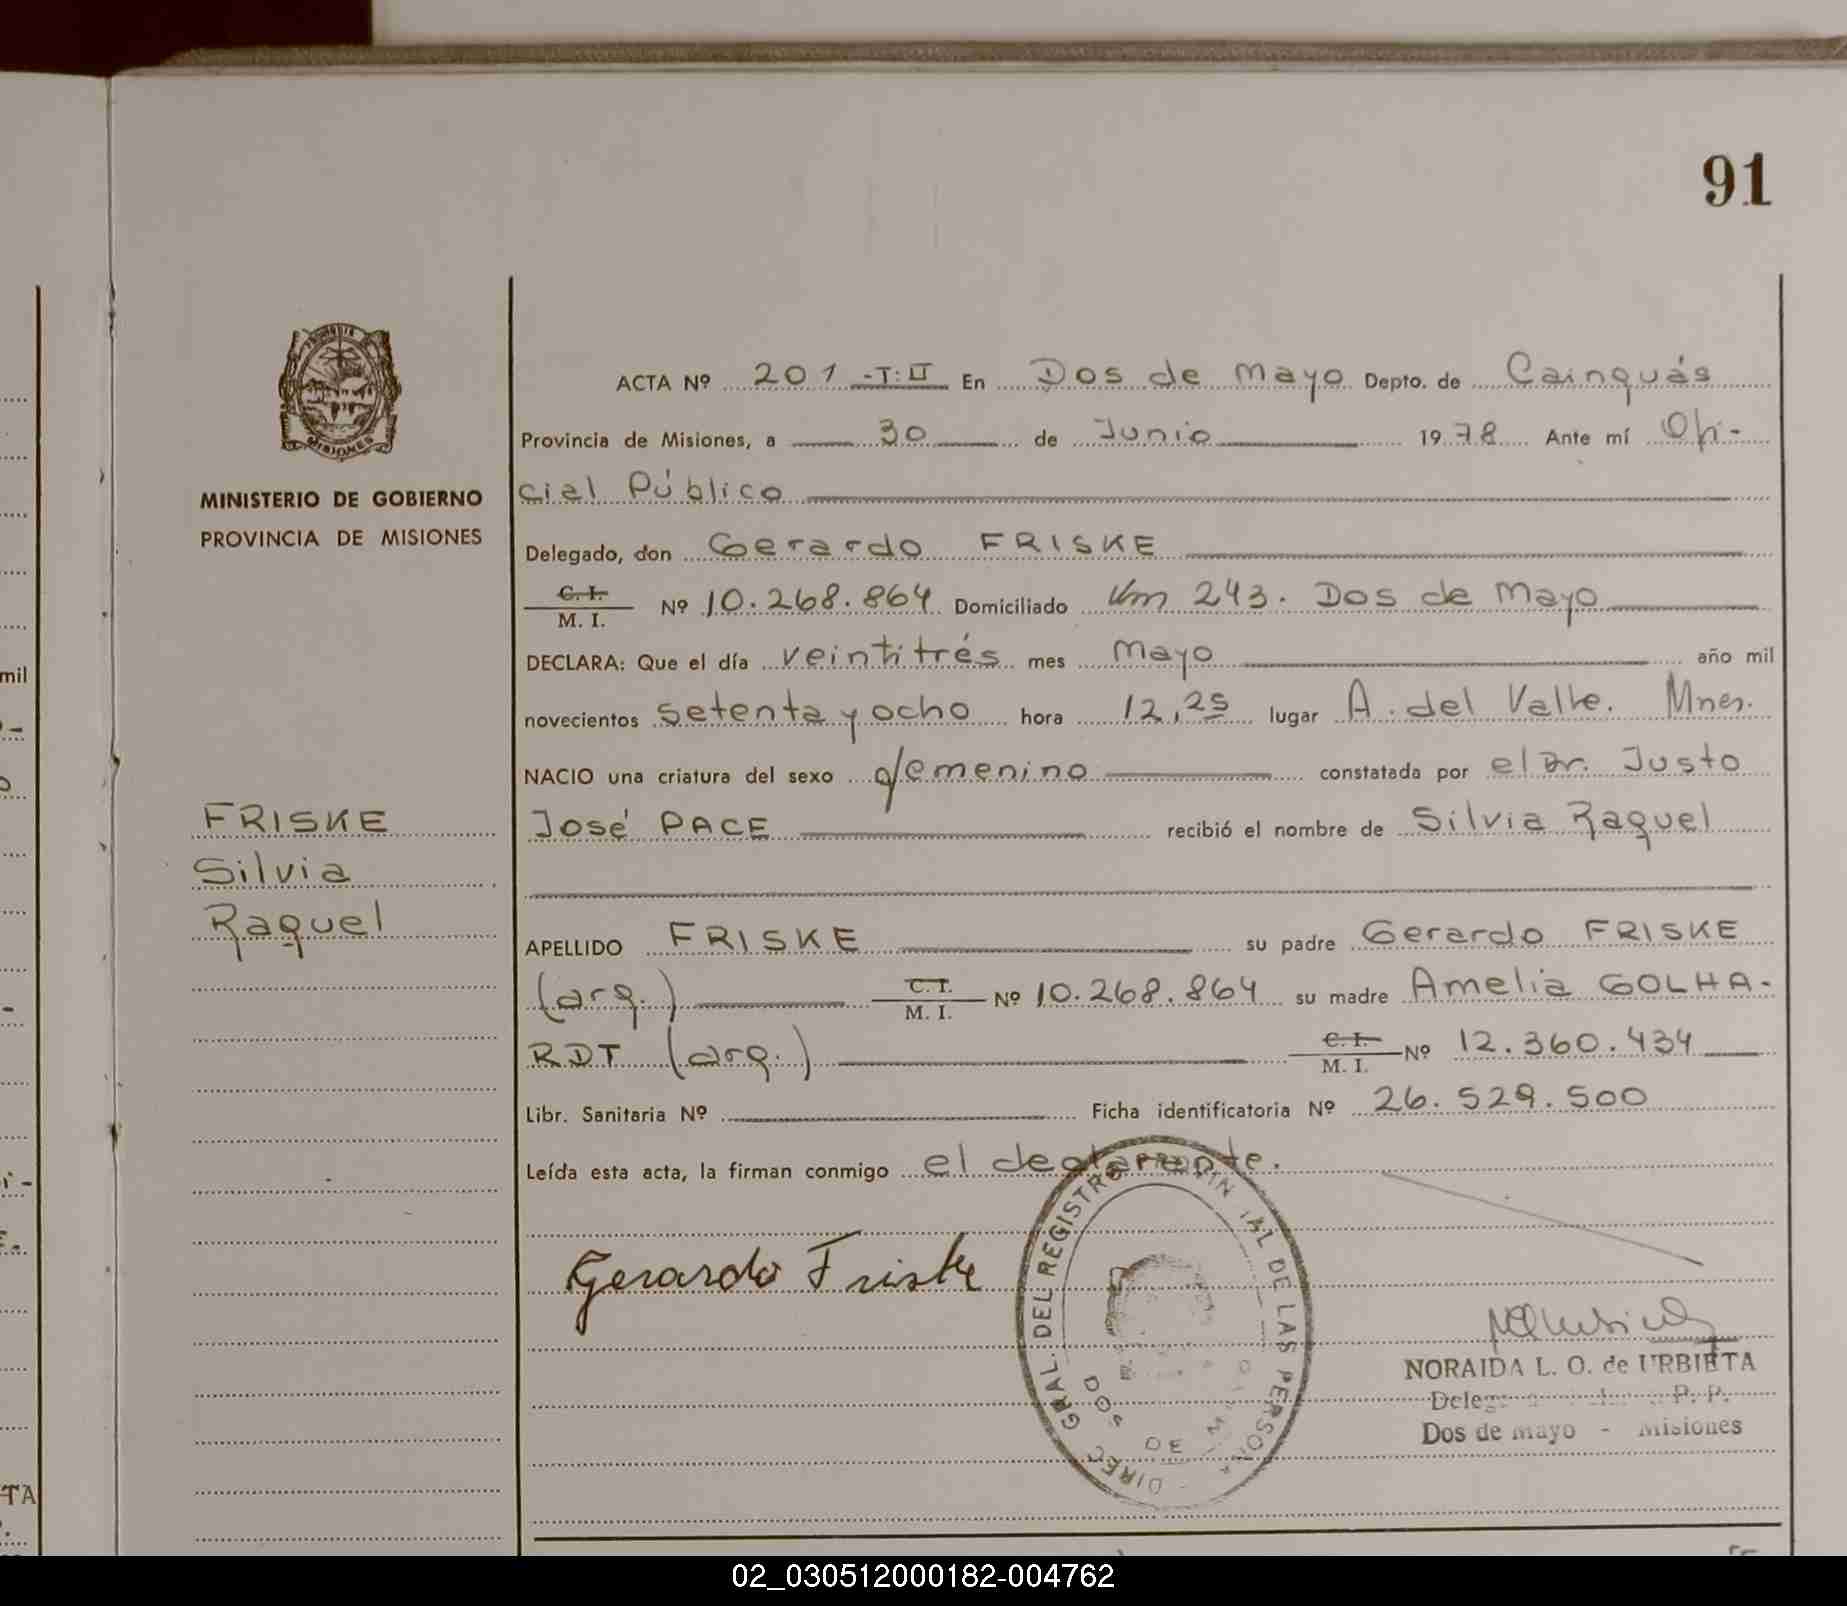 91
ACTA Nº 201 -T:II En Dos de Mayo Depto. de Cainguás
Provincia de Misiones, a 30 de Junio 1978 Ante mí Ofi-
cial Público
MINISTERIO DE GOBIERNO
PROVINCIA DE MISIONES
Delegado, don Gerardo FRISKE
C. I.
M. I. Nº 10.268.864 Domiciliado Km 243. Dos de Mayo
DECLARA: Que el día veintitrés mes Mayo año mil
novecientos setenta y ocho hora 12,25 lugar A. del Valle. Mnes.
NACIO una criatura del sexo femenino constatada por el Dr. Justo
José PACE recibió el nombre de Silvia Raquel
FRISKE
Silvia
Raquel
APELLIDO FRISKE su padre Gerardo FRISKE
(arg.) C. I.
M. I. Nº 10.268.864 su madre Amelia GOLHA-
RDT (arg.) C. I.
M. I. Nº 12.360.434
Libr. Sanitaria Nº Ficha identificatoria Nº 26.529.500
Leída esta acta, la firman conmigo el declarante.
Gerardo Friske
DIREC GRAL. DEL REGISTRO PROVIN IAL DE LAS PERSONA
DOS DE M
NORAIDA L. O. de URBIETA
P. P.
Dos de mayo - Misiones
mil
TA
02_030512000182-004762